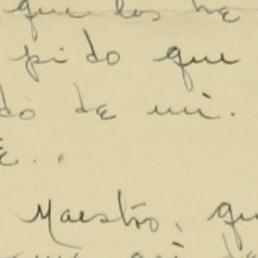 que los he
pido que
do de mi.
Maestro, qu